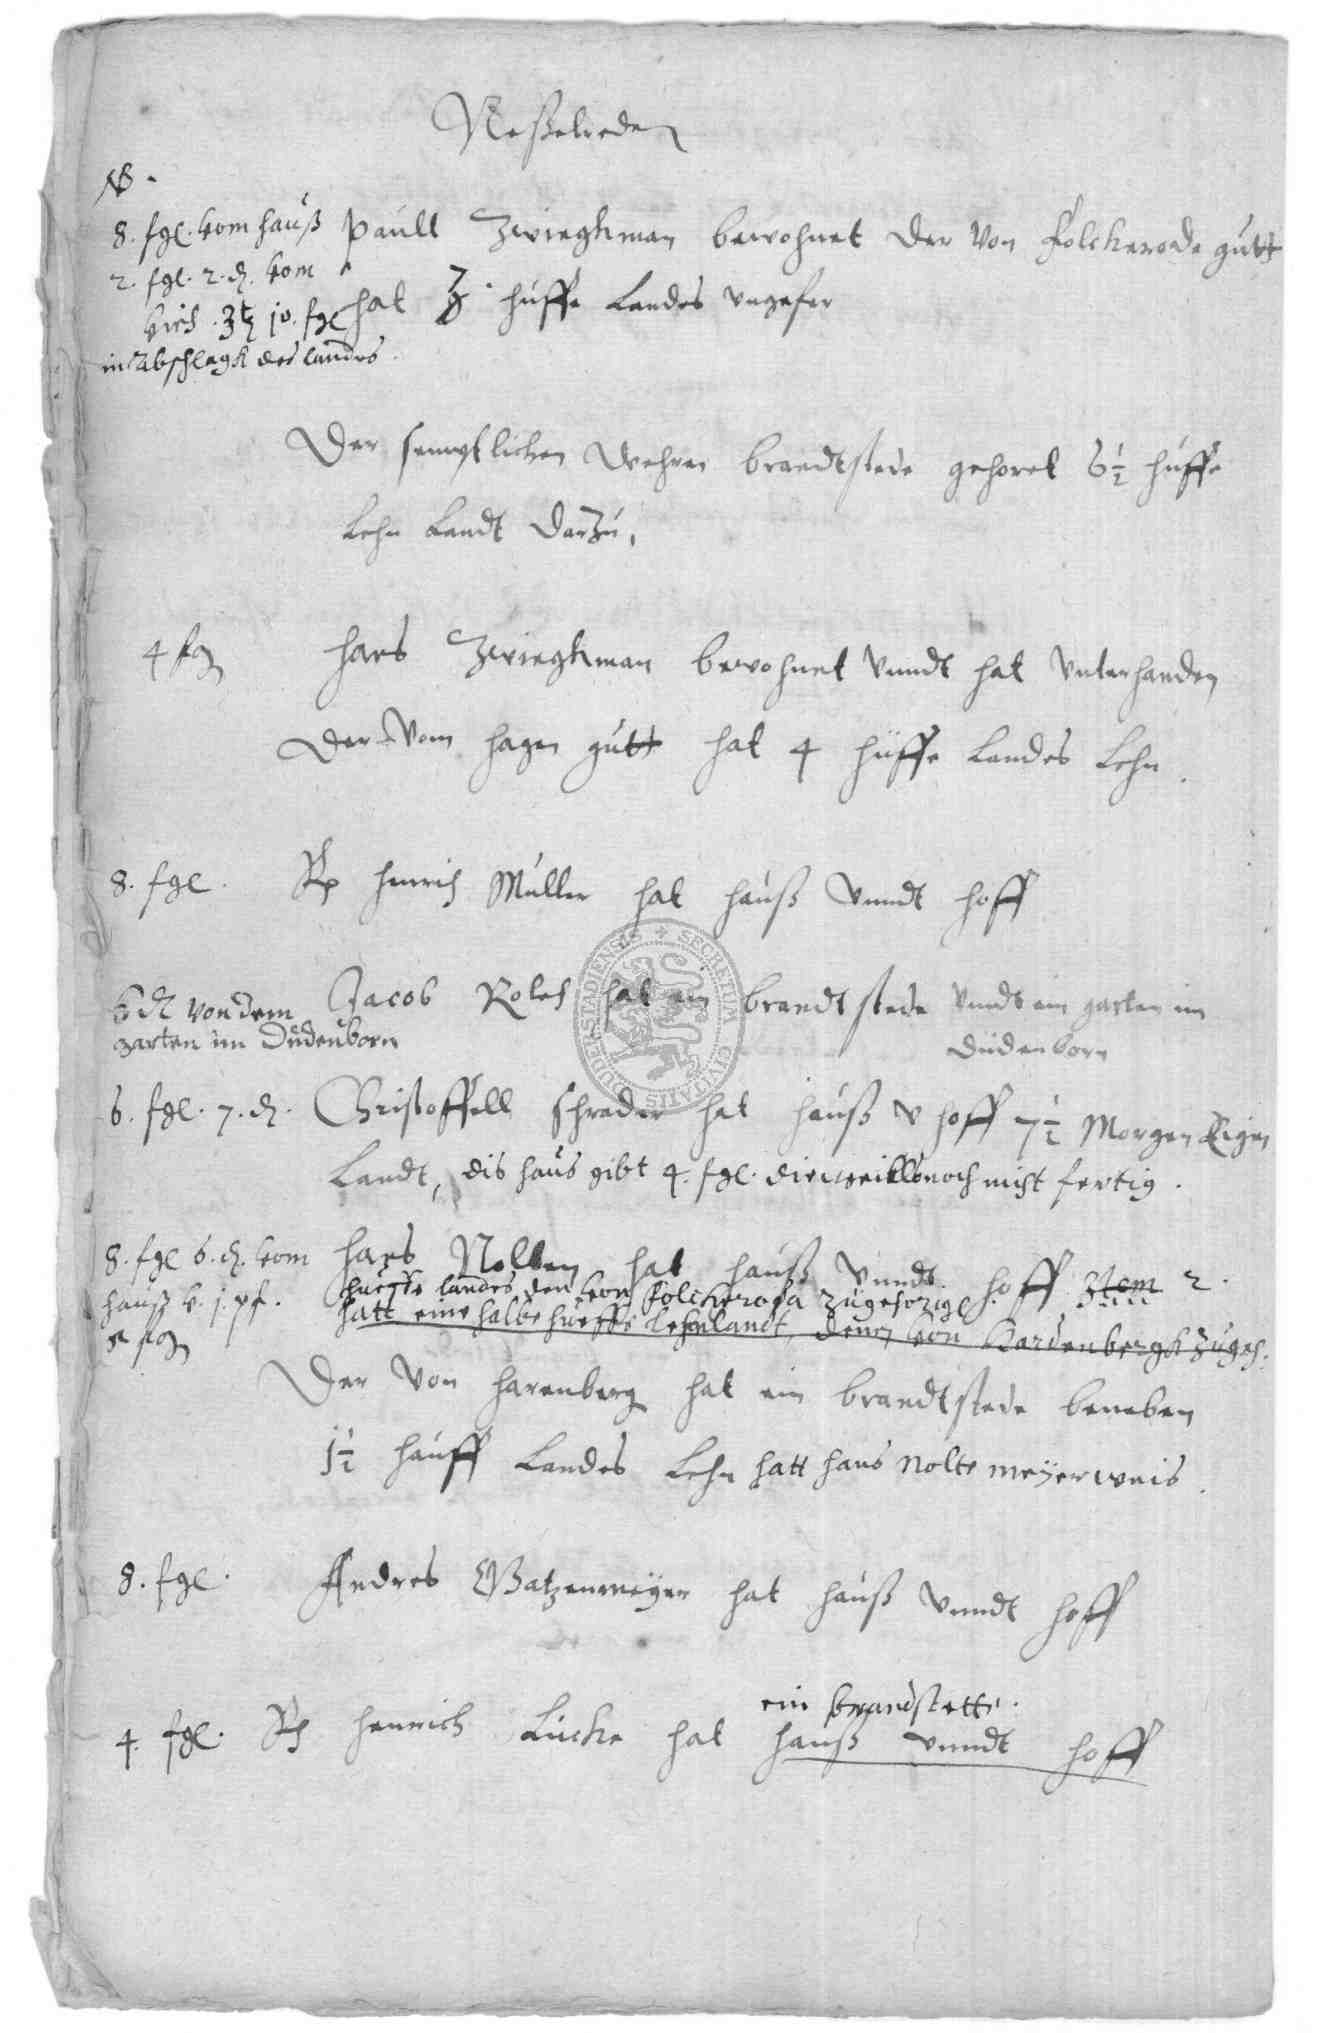 Neßelreden
NB.
8. fgl. vom hauß
2. fgl. 2. d. vom
vieh. 10. fgl
in Abschlagk des landes.
Paull Zwieghman bewohnet der von Folckerode gutt
hat 3. huffe Landes ungefer
Der semptlichen Wehren brandtstede gehoret 6½ huffe
Lehn Landt darzu,
4 fg
Hans Zwieghman bewohnet vnndt hat vnterhanden
der vom Hagen gutt hat 4 huffe Landes Lehn.
8. fgl.
Henrich Muller hat hauß vnndt hoff
6 d von dem
garten im Düdenborn
Jacob Roleh hat ein brandtstede vnndt ein garten im
Düdenborn
6. fgl. 7. d.
Christoffell Schrader hat hauß v hoff 7½ Morgen Eigen
Landt, dis haus gibt 4. fgl. dieweills noch nicht fertig.
8. fgl 6. d. vom
hauß v. j. pf.
fg
Hans Nolten hat hauß vnndt hoff Item 2.
hueffe landes den von Folckeroda zugehorige
hatt eine halbe hueffe Lehnlandt, denen von Hardenbergk zugeh:
Der von Harenberg hat ein brandtstede beneben
1½ hauff Landes Lehn hatt hans Nolte meyerweis.
8. fgl.
Andres Watzenmeyer hat hauß vnndt hoff
ein brandstette.
4. fgl. Henrich Lücke hat hauß vnndt hoff
SECRETIA CIVITATIS DUDERSTADIENSIS